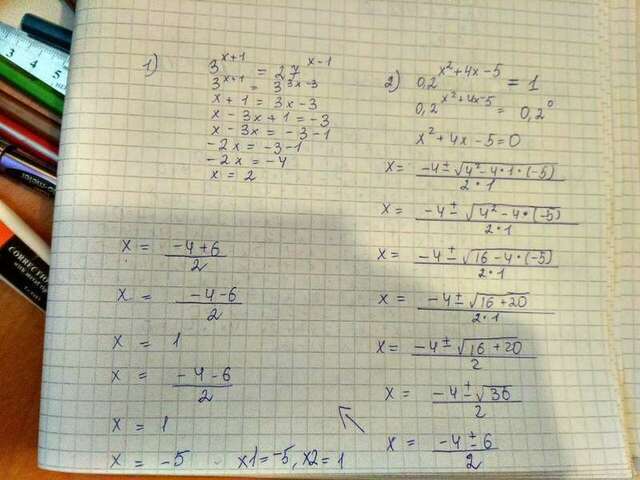 1)
3^(x+1) = 27^(x-1)
3^(x+1) = 3^(3x-3)
x + 1 = 3x - 3
x - 3x + 1 = -3
x - 3x = -3 - 1
-2x = -3 - 1
-2x = -4
x = 2
2) 0,2^(x²+4x-5) = 1
0,2^(x²+4x-5) = 0,2^0
x² + 4x - 5 = 0
x = (-4 ± √(4² - 4·1·(-5))) / (2·1)
x = (-4 ± √(4² - 4·(-5))) / (2·1)
x = (-4 ± √(16 - 4·(-5))) / (2·1)
x = (-4 ± √(16 + 20)) / (2·1)
x = (-4 ± √(16 + 20)) / 2
x = (-4 ± √36) / 2
x = (-4 ± 6) / 2
x = (-4 + 6) / 2
x = (-4 - 6) / 2
x = 1
x = (-4 - 6) / 2
x = 1
x = -5 x1 = -5, x2 = 1
CORRECTION